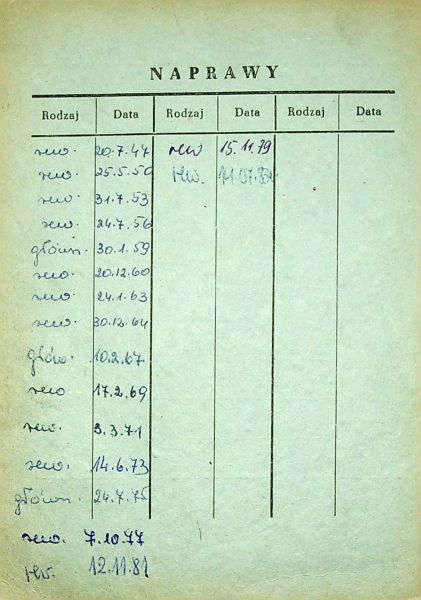 NAPRAWY
Rodzaj Data Rodzaj Data Rodzaj Data
rew. 20.7.47 rew 15.11.79
rew. 25.5.50 rew.
rew. 31.7.53
rew. 24.7.56
główn. 30.1.59
rew. 20.12.60
rew. 24.1.63
rew. 30.12.64
główn. 10.2.67
rew 17.2.69
rew. 3.3.71
rew. 14.6.73
główn. 24.7.75
rew. 7.10.77
rew. 12.11.81